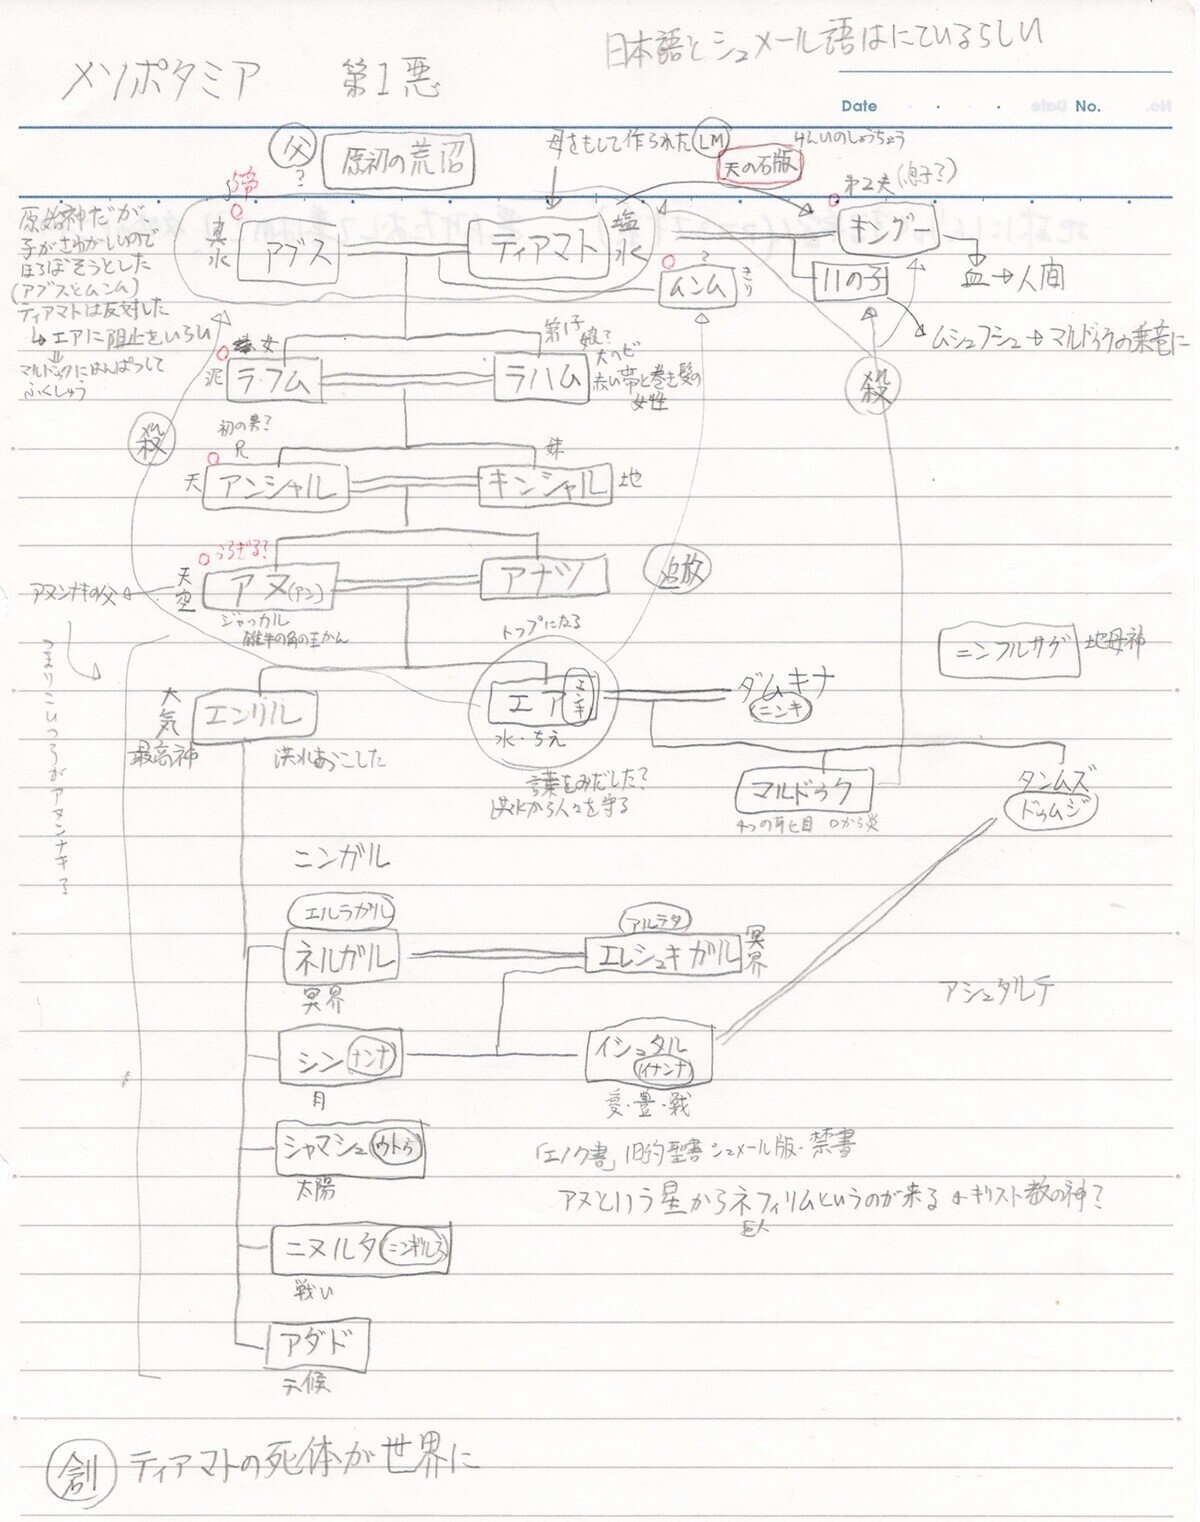 日本語とシュメール語はにているらしい
メソポタミア 第1悪
Date ・ ・ No.
父
?
原初の荒沼
母をもして作られた LM
けんいのしょうちょう
天の石版
第2夫(息子?)
原始神だが、
子がさわがしいので
ほろぼそうとした
(アプスとムンム)
ティアマトは反対した
↳エアに阻止をいらい
マルドゥクにはんぱつして
ふくしゅう
真水
アプス
ティアマト
塩水
キングー
?
ムンム
きり
11の子
血→人間
ムシュフシュ→マルドゥクの乗竜に
女
泥
ラフム
第1子
娘?
ラハム
大ヘビ
赤い帯と巻き髪の
女性
殺
殺
初の男?
兄
天
アンシャル
妹
キンシャル
地
うらぎる?
天空
アヌ(アン)
アナツ
追放
アヌンナキの父
ジャッカル
雄牛の角の王かん
トップになる
ニンフルサグ
地母神
つまりこいつらがアヌンナキら
大気
エンリル
最高神
洪水おこした
エア
エンキ
水・ちえ
ダムキナ
ニンキ
言葉をみだした?
洪水から人々を守る
マルドゥク
4つの耳と目 口から炎
タンムズ
ドゥムジ
ニンガル
エルラガル
ネルガル
冥界
アルラタ
エレシュキガル
冥界
アシュタルテ
シン ナンナ
月
イシュタル
イナンナ
愛・豊・戦
シャマシュ ウトゥ
太陽
「エノク書」旧約聖書シュメール版・禁書
アヌという星からネフィリムというのが来る ←キリスト教の神?
巨人
ニヌルタ ニンギルス
戦い
アダド
天候
創 ティアマトの死体が世界に